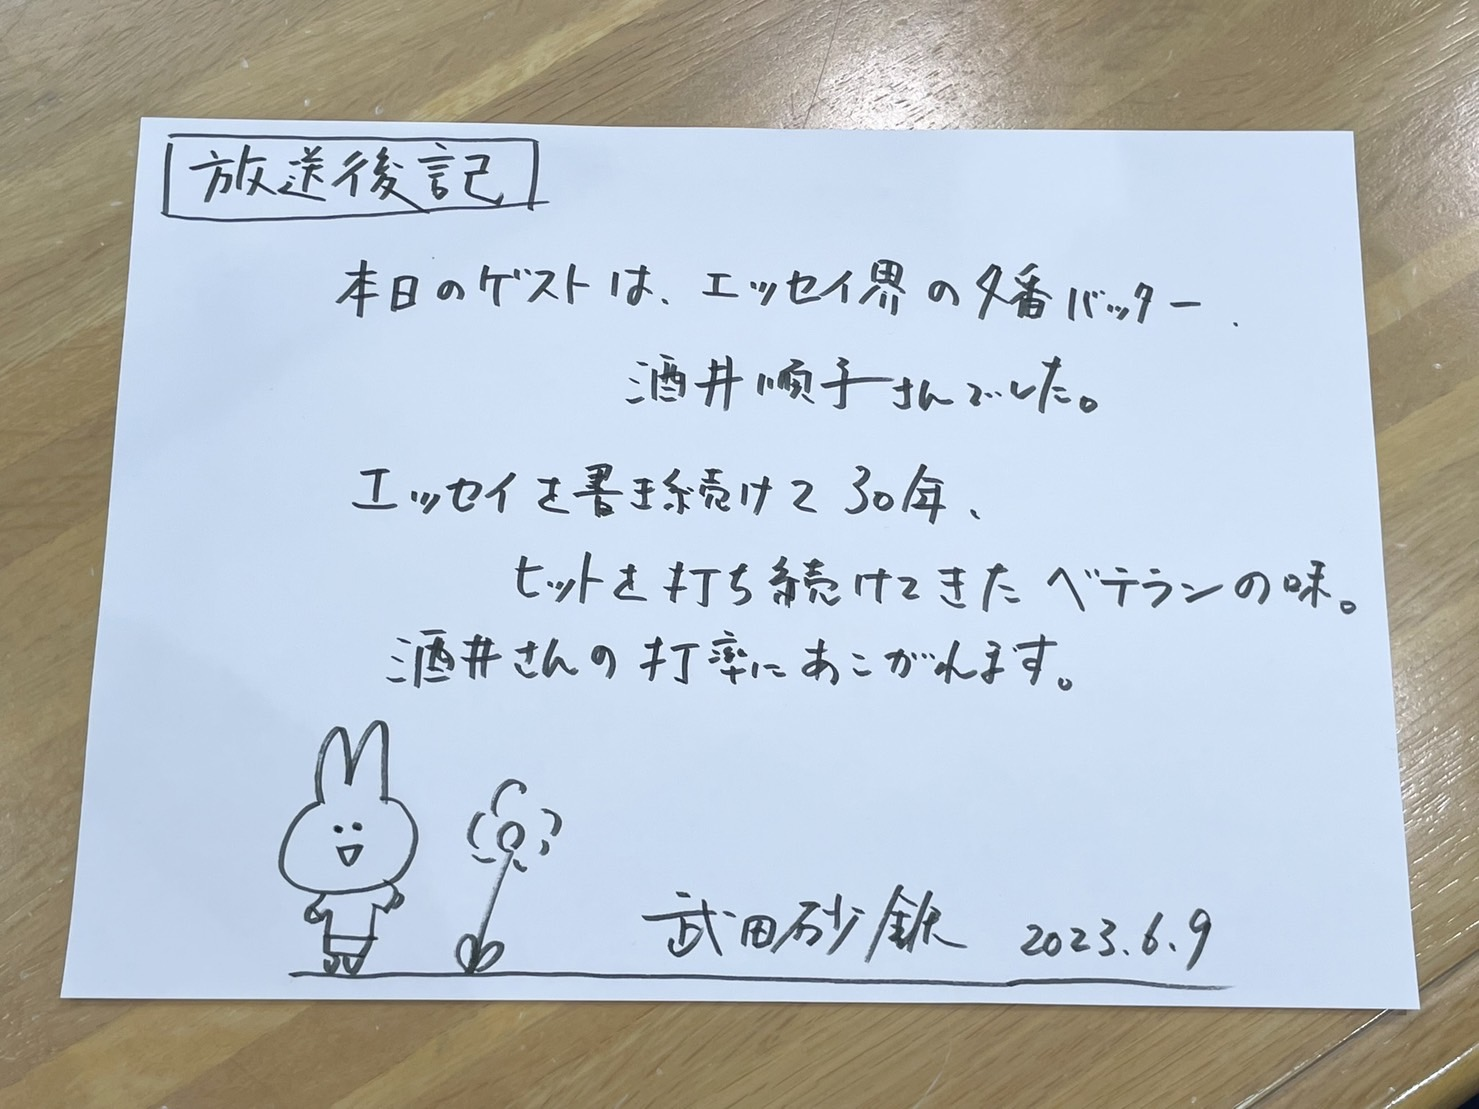 放送後記
本日のゲストは、エッセイ界の4番バッター、
酒井順子さんでした。
エッセイを書き続けて30年、
ヒットを打ち続けてきたベテランの味。
酒井さんの打率にあこがれます。
武田砂鉄 2023.6.9